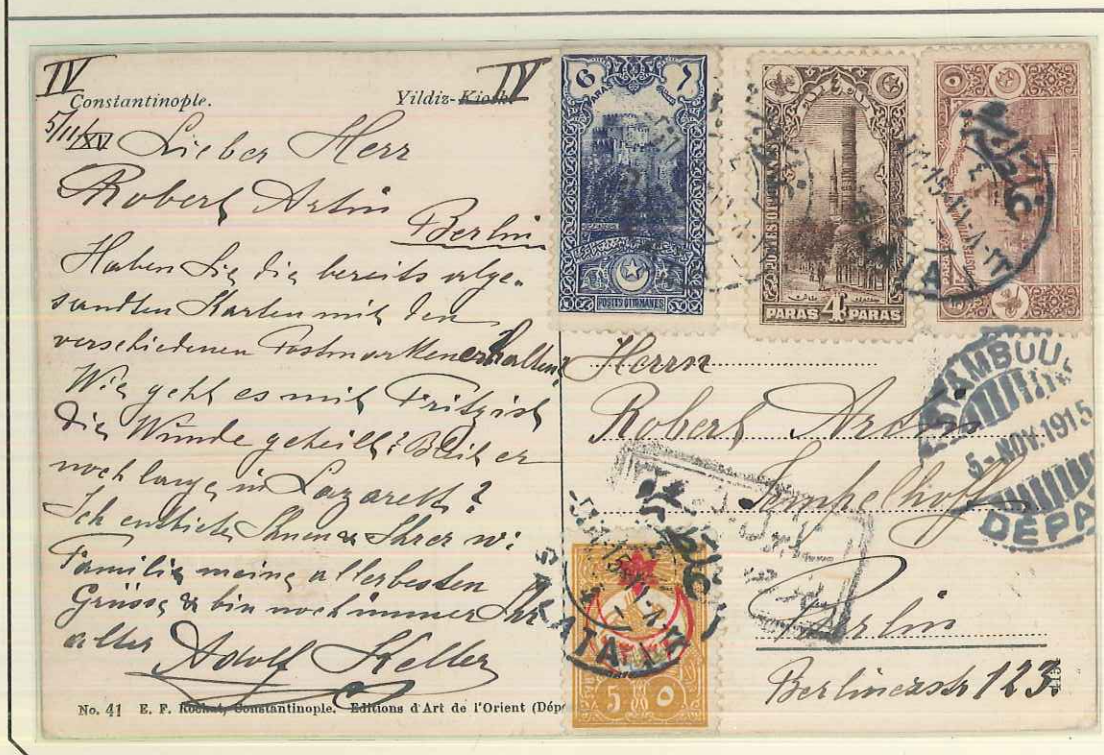 IV IV
Constantinople. Yildiz-Kiosk
5/11/XV Lieber Herr
Robert Arlin
Berlin
Haben Sie die bereits abge-
sandten Karten mit den
verschiedenen Postmarken erhalten?
Wie geht es mit Fritz, ist
die Wunde geheilt? Bleibt er
noch lange im Lazarett?
Ich entbiete Ihnen & Ihrer w:
Familie meine allerbesten
Grüsse & bin noch immer Ihr
alter Adolf Keller
No. 41 E. F. Rochat, Constantinople. Editions d'Art de l'Orient (Dép
6 PARAS ٦
POSTES OTTOMANES
POSTES OTTOMANES
PARAS 4 PARAS
٥
GALATA
STAMBOUL
5-NOV.1915
DÉPA
Herrn
Robert Arlin
Tempelhoff
Berlin
Berlinerstr 123.
GALATA
5 ٥